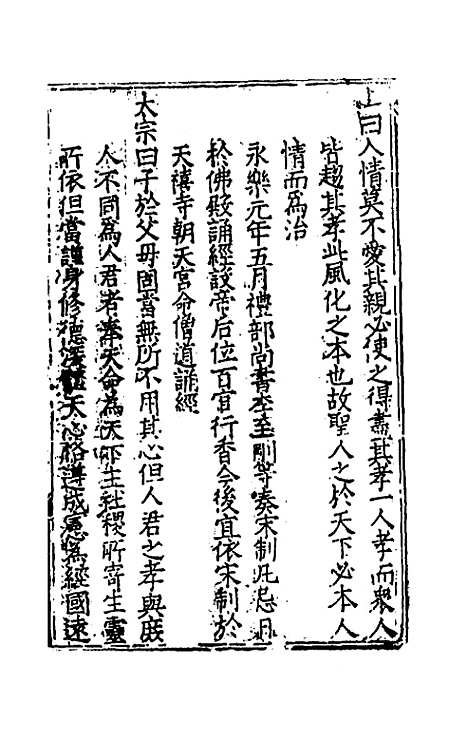 上曰人情莫不愛其親必使之得盡其孝一人孝而衆人
皆趨其孝此風化之本也故聖人之於天下必本人
情而爲治
永樂元年五月禮部尚書李至剛等奏宋制凡忌日
於佛殿誦經設帝后位百官行香今後宜依宋制於
天禧寺朝天宮命僧道誦經
太宗曰子於父母固當無所不用其心但人君之孝與庶
人不同爲人君者奉天命爲天下生社稷所寄生靈
所依但當謹身修德深體天心恪遵成憲爲經國遠